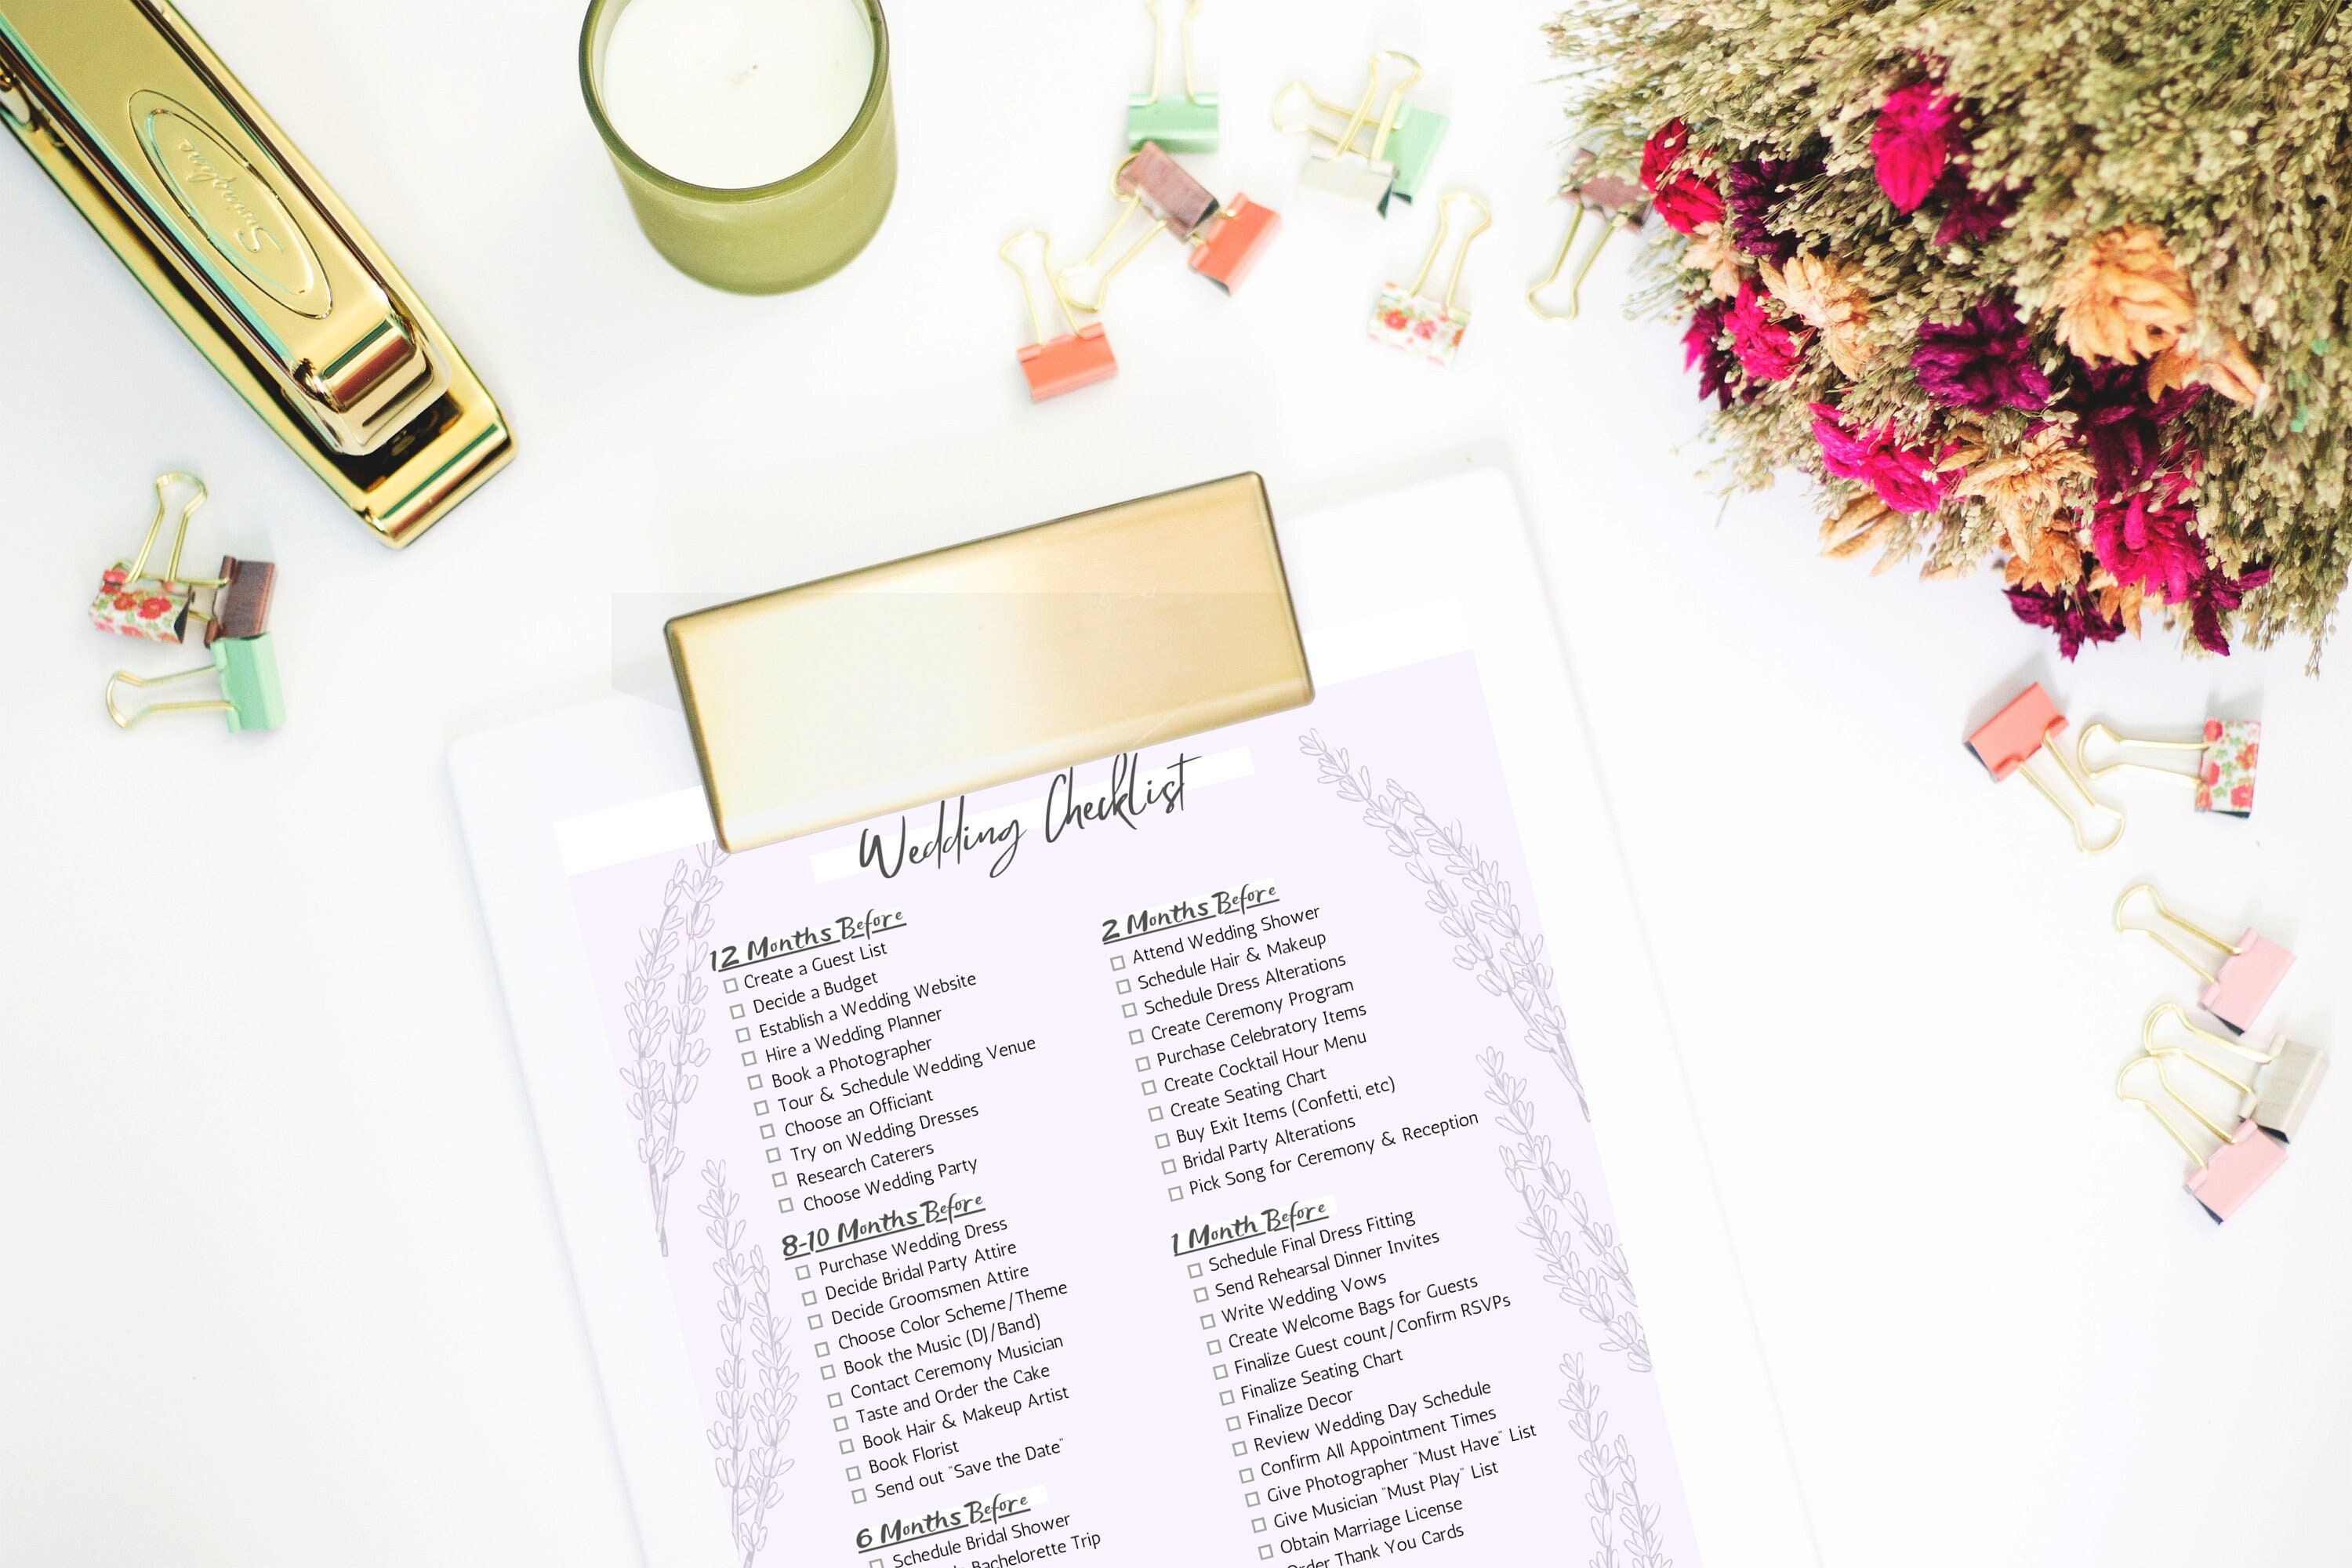 Swingline
Wedding Checklist
12 Months Before
Create a Guest List
Decide a Budget
Establish a Wedding Website
Hire a Wedding Planner
Book a Photographer
Tour & Schedule Wedding Venue
Choose an Officiant
Try on Wedding Dresses
Research Caterers
Choose Wedding Party
8-10 Months Before
Purchase Wedding Dress
Decide Bridal Party Attire
Decide Groomsmen Attire
Choose Color Scheme/Theme
Book the Music (DJ/Band)
Contact Ceremony Musician
Taste and Order the Cake
Book Hair & Makeup Artist
Book Florist
Send out "Save the Date"
6 Months Before
Schedule Bridal Shower
Bachelorette Trip
2 Months Before
Attend Wedding Shower
Schedule Hair & Makeup
Schedule Dress Alterations
Create Ceremony Program
Purchase Celebratory Items
Create Cocktail Hour Menu
Create Seating Chart
Buy Exit Items (Confetti, etc)
Bridal Party Alterations
Pick Song for Ceremony & Reception
1 Month Before
Schedule Final Dress Fitting
Send Rehearsal Dinner Invites
Write Wedding Vows
Create Welcome Bags for Guests
Finalize Guest count/Confirm RSVPs
Finalize Seating Chart
Finalize Decor
Review Wedding Day Schedule
Confirm All Appointment Times
Give Photographer "Must Have" List
Give Musician "Must Play" List
Obtain Marriage License
Order Thank You Cards